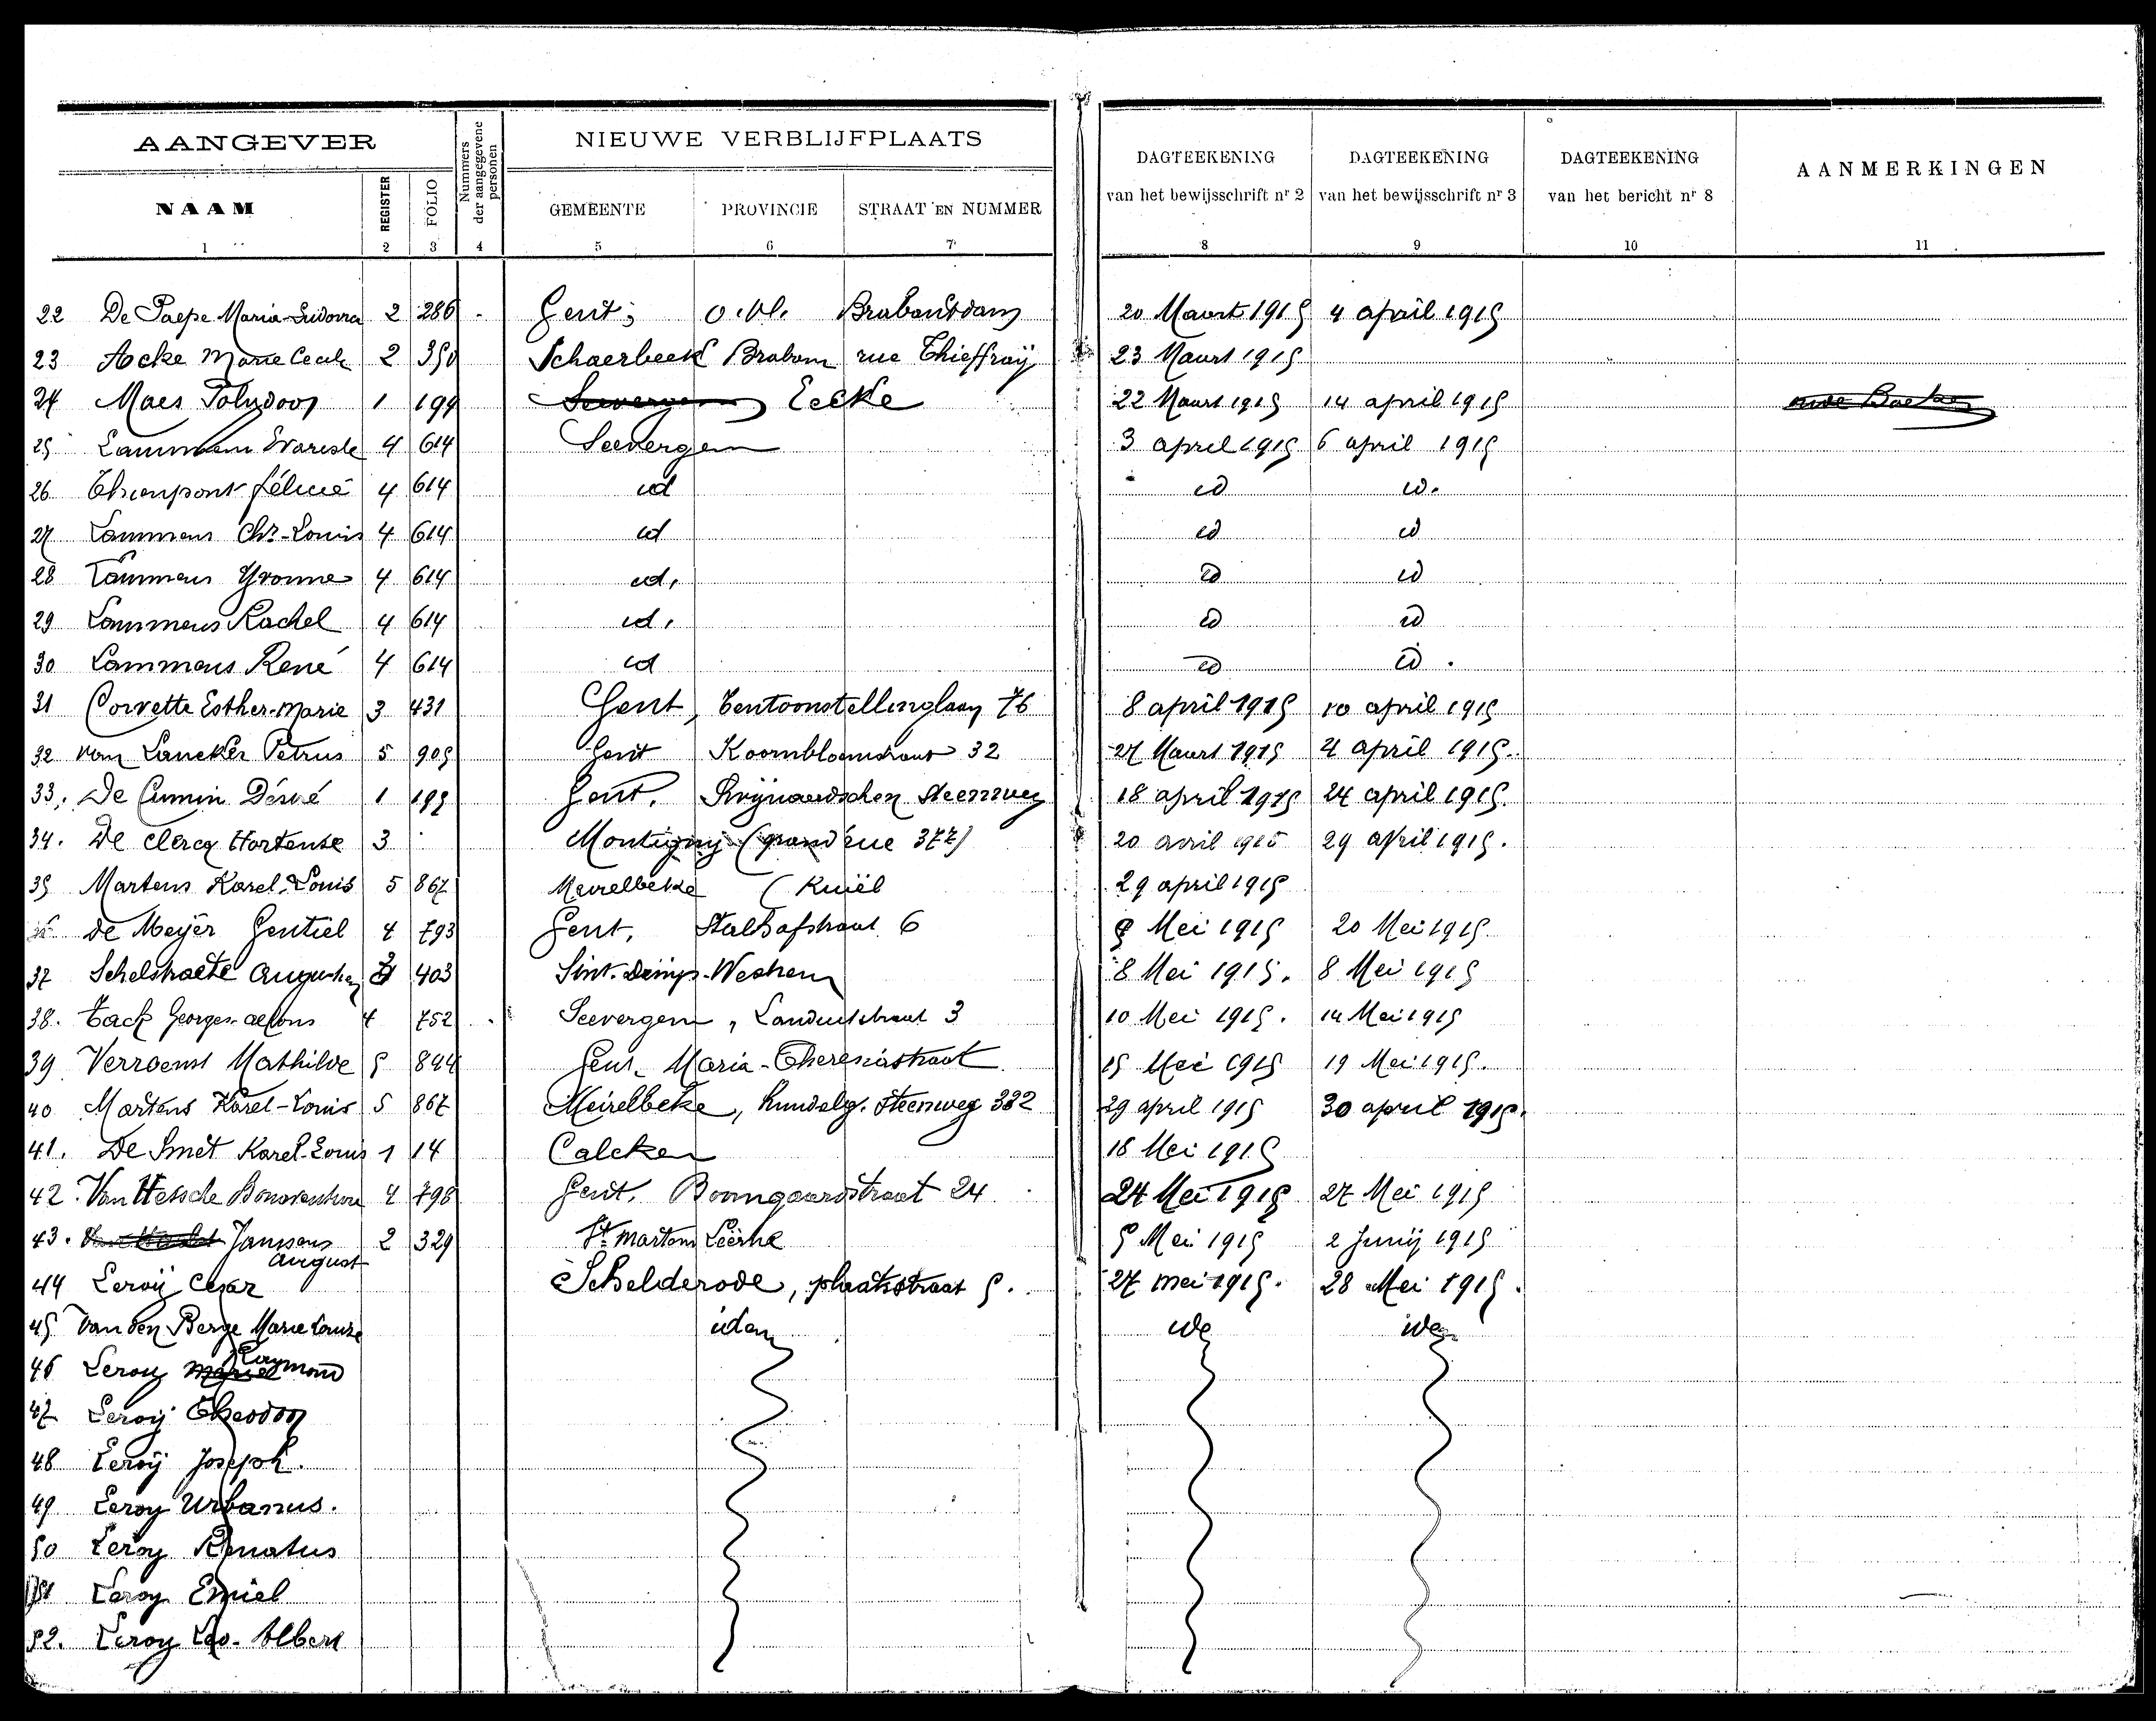 AANGEVER
Nummers der aangegevene personen
NIEUWE VERBLIJFPLAATS
DAGTEEKENING van het bewijsschrift nr 2
DAGTEEKENING van het bewijsschrift nr 3
DAGTEEKENING van het bericht nr 8
AANMERKINGEN
NAAM REGISTER FOLIO GEMEENTE PROVINCIE STRAAT EN NUMMER
1 2 3 4 5 6 7 8 9 10 11
22 De Paepe Maria 2 286 Gent; O.Vl. Brabantdam 20 Maart 1915 4 april 1915
23 Acke Marie Cecile 2 350 Schaerbeek Braban rue Thieffrÿ 23 Maart 1915
24 Maes Polydoor 1 199 Seevergem Eecke 22 Maart 1915 14 april 1915
25 Lammens Evariste 4 614 Seevergem 3 april 1915 6 april 1915
26 Thienpont félicie 4 614 id id id.
27 Lammens Chs-Louis 4 614 id id id
28 Lammens Yvonne 4 614 id. id id
29 Lammens Rachel 4 614 id. id id
30 Lammens René 4 614 id id id.
31 Corvette Esther-Marie 3 431 Gent, Tentoonstellinglaan 76 8 april 1915 10 april 1915
32 Van Lancker Petrus 5 905 Gent Koornbloemstraat 32 27 Maart 1915 4 april 1915.
33. De Désiré 1 Gent. Steenweg 18 april 1915 24 april 1915.
34. De Clercq Hortense 3 Montigny (grand'rue 377) 20 avril 1915 29 april 1915.
35 Martens Karel-Louis 5 867 Meirelbeke (Kwiël 29 april 1915
De Meÿer Gentiel 4 793 Gent, Stalhofstraat 6 Mei 1915 20 Mei 1915
37 Schelstraete 403 Sint-Denijs-Westrem 8 Mei 1915. 8 Mei 1915
38. Tack Georges-Alfons 4 752 Seevergem, 3 10 Mei 1915. 14 Mei 1915
39 Mathilde 5 894 Gent. Maria-Theresiastraat 15 Mei 1915 19 Mei 1915.
40 Martens Karel-Louis 5 867 Meirelbeke, Hundelg. Steenweg 332 29 april 1915 30 april 1915.
41. De Smet Karel-Louis 1 14 Calcken 18 Mei 1915
42. Van Hessche Bonaventure 4 798 Gent. Boomgaardstraat 24 24 Mei 1915 27 Mei 1915
43. Janssens August 2 329 St Martens Leerne 5 Mei 1915 2 Junij 1915
44 Leroÿ Cesar Schelderode, plaatsstraat 5. 27 mei 1915. 28 Mei 1915.
45 Van den Berge Marie Louise idem ide idem
46 Leroy Raymond
47 Leroÿ Theodoor
48 Leroÿ Joseph.
49 Leroy Urbanus.
50 Leroy Renatus
51 Leroy Emiel
52. Leroy Leo-Albert